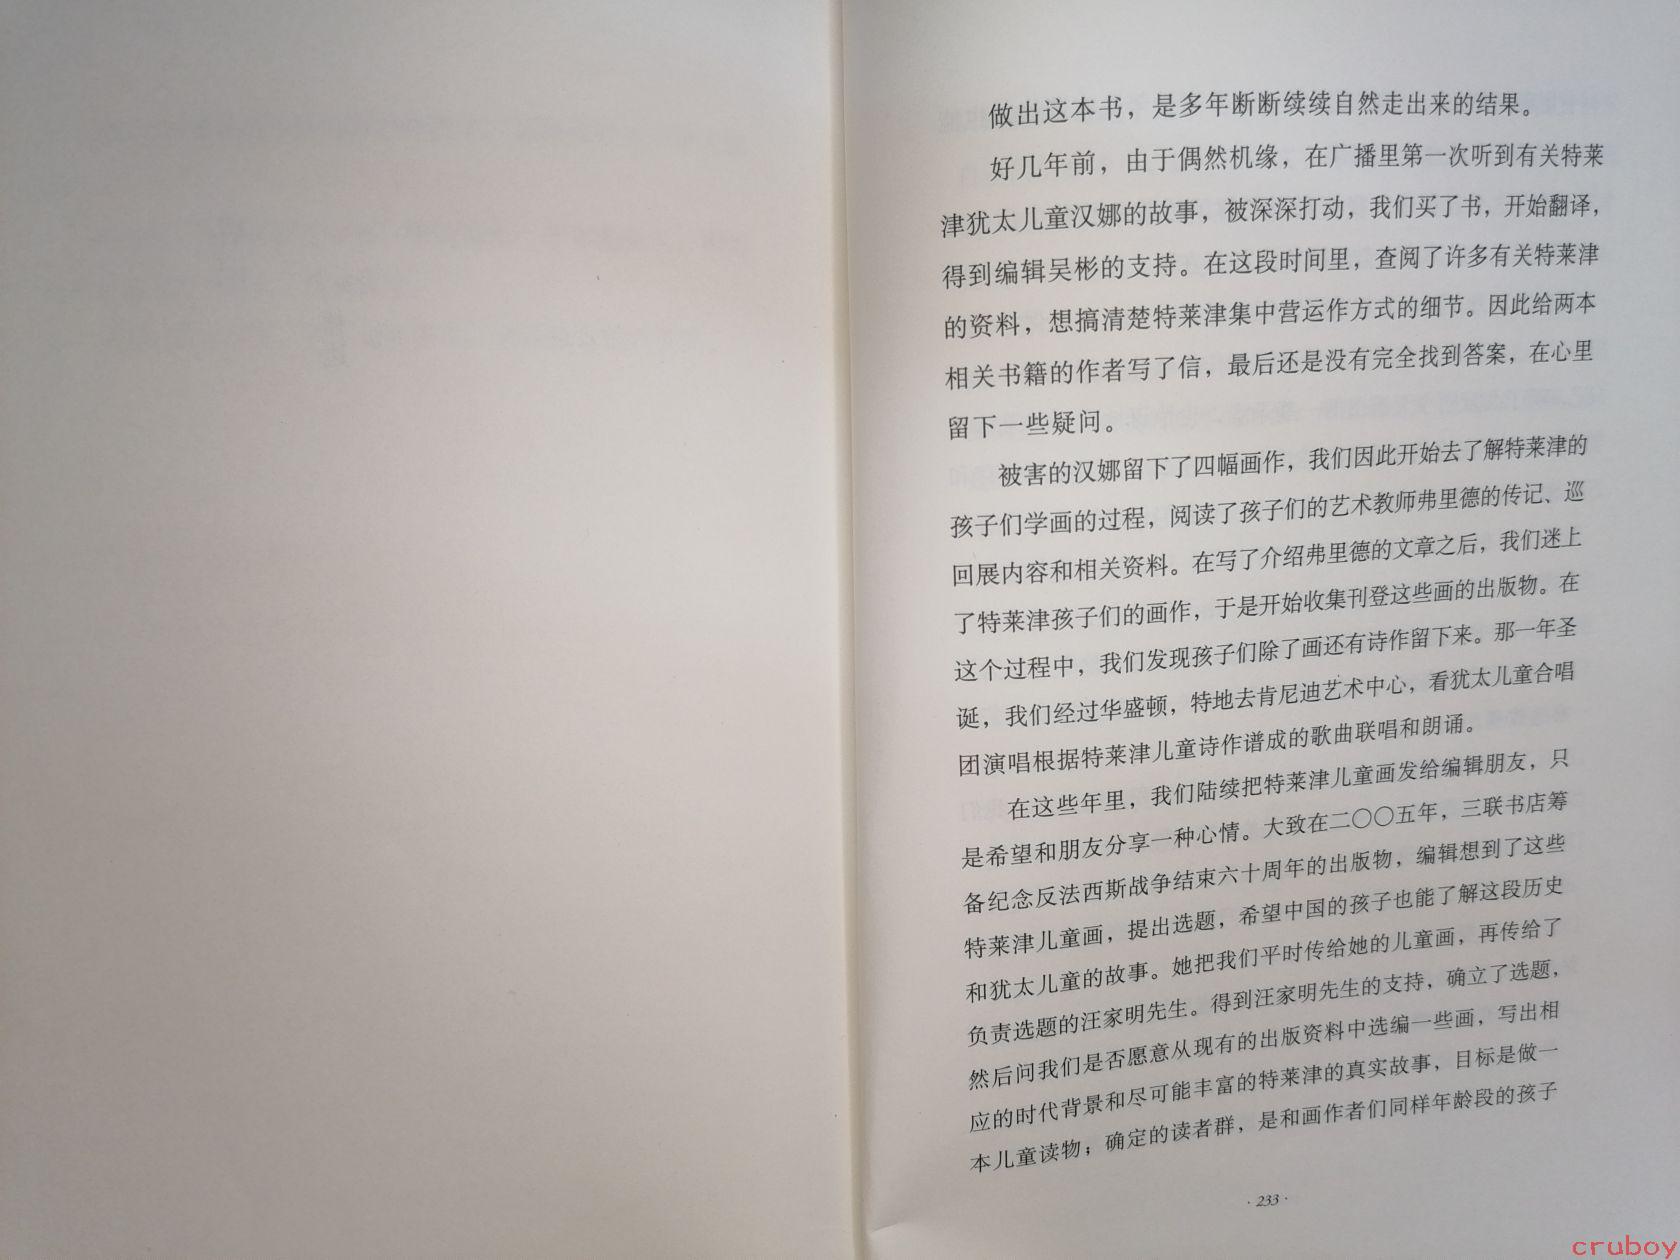 做出这本书，是多年断断续续自然走出来的结果。
好几年前，由于偶然机缘，在广播里第一次听到有关特莱
津犹太儿童汉娜的故事，被深深打动，我们买了书，开始翻译，
得到编辑吴彬的支持。在这段时间里，查阅了许多有关特莱津
的资料，想搞清楚特莱津集中营运作方式的细节。因此给两本
相关书籍的作者写了信，最后还是没有完全找到答案，在心里
留下一些疑问。
被害的汉娜留下了四幅画作，我们因此开始去了解特莱津的
孩子们学画的过程，阅读了孩子们的艺术教师弗里德的传记、巡
回展内容和相关资料。在写了介绍弗里德的文章之后，我们迷上
了特莱津孩子们的画作，于是开始收集刊登这些画的出版物。在
这个过程中，我们发现孩子们除了画还有诗作留下来。那一年圣
诞，我们经过华盛顿，特地去肯尼迪艺术中心，看犹太儿童合唱
团演唱根据特莱津儿童诗作谱成的歌曲联唱和朗诵。
在这些年里，我们陆续把特莱津儿童画发给编辑朋友，只
是希望和朋友分享一种心情。大致在二〇〇五年，三联书店筹
备纪念反法西斯战争结束六十周年的出版物，编辑想到了这些
特莱津儿童画，提出选题，希望中国的孩子也能了解这段历史
和犹太儿童的故事。她把我们平时传给她的儿童画，再传给了
负责选题的汪家明先生。得到汪家明先生的支持，确立了选题，
然后问我们是否愿意从现有的出版资料中选编一些画，写出相
应的时代背景和尽可能丰富的特莱津的真实故事，目标是做一
本儿童读物；确定的读者群，是和画作者们同样年龄段的孩子
· 233 ·
cruboy